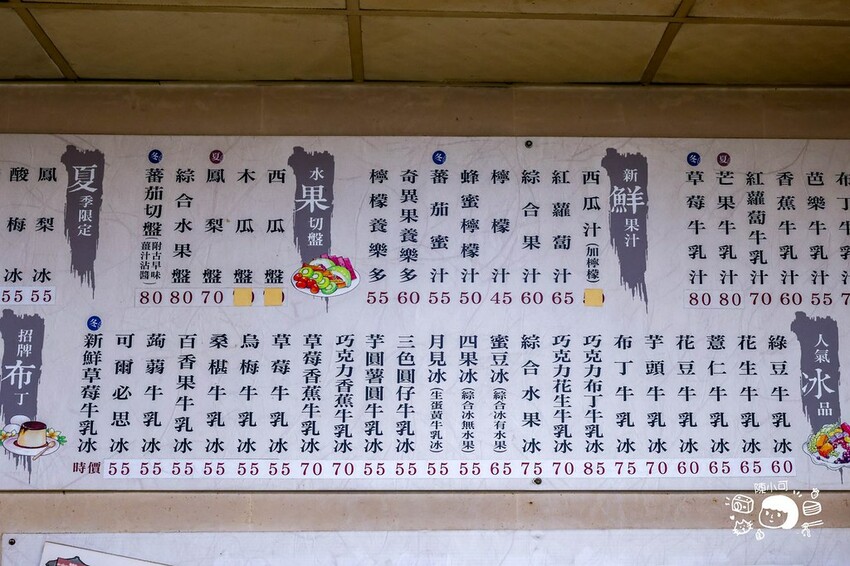 布丁牛
芭樂牛乳汁 55
香蕉牛乳汁 60
紅蘿蔔牛乳汁 70
夏 芒果牛乳汁 80
冬 草莓牛乳汁 80
新鮮果汁
西瓜汁(加檸檬)
紅蘿蔔汁 65
綜合果汁 60
檸檬汁 45
蜂蜜檸檬汁 50
冬 蕃茄蜜汁 55
奇異果養樂多 60
檸檬養樂多 55
水果切盤
西瓜盤
木瓜盤
夏 鳳梨盤 70
綜合水果盤 80
冬 蕃茄切盤(附古早味薑汁沾醬) 80
夏季限定
鳳梨冰 55
酸梅冰 55
人氣冰品
綠豆牛乳冰 60
花生牛乳冰 65
薏仁牛乳冰 65
花豆牛乳冰 60
芋頭牛乳冰 70
布丁牛乳冰 75
巧克力布丁牛乳冰 85
巧克力花生牛乳冰 70
綜合水果冰 75
蜜豆冰(綜合冰有水果) 65
四果冰(綜合冰無水果) 55
月見冰(生蛋黃牛乳冰) 55
三色圓仔牛乳冰 55
芋圓薯圓牛乳冰 55
巧克力香蕉牛乳冰 70
草莓香蕉牛乳冰 70
草莓牛乳冰 55
烏梅牛乳冰 55
桑椹牛乳冰 55
百香果牛乳冰 55
蒟蒻牛乳冰 55
可爾必思冰 55
冬 新鮮草莓牛乳冰 時價
招牌布丁
陳小可